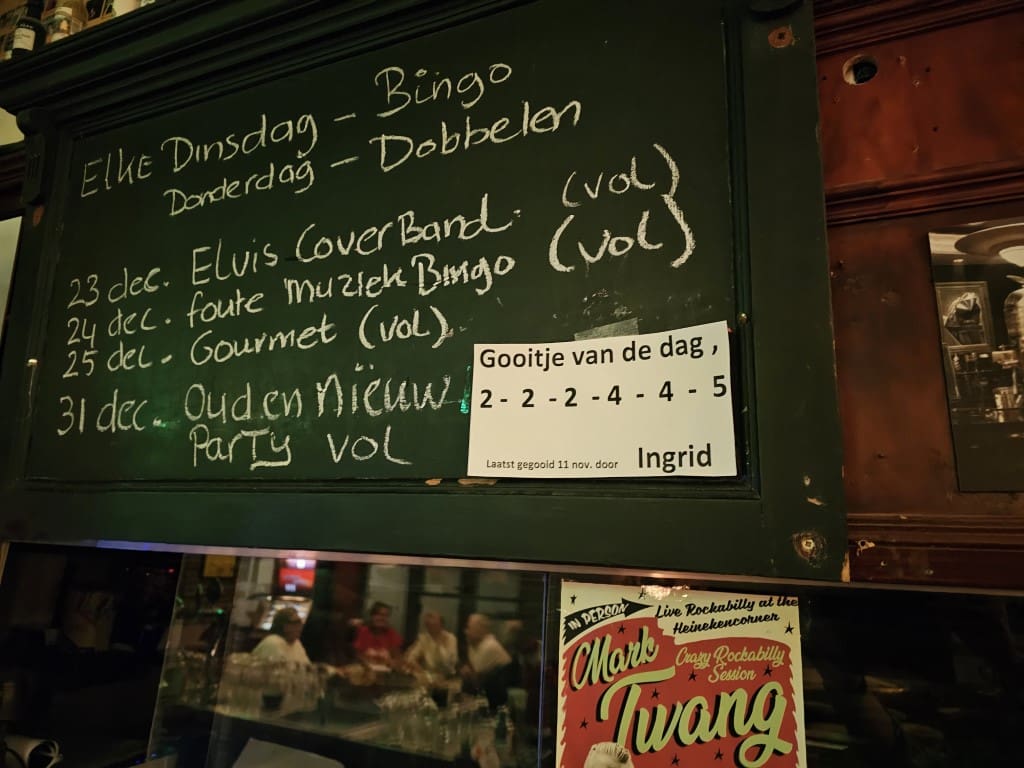 Elke Dinsdag - Bingo
Donderdag - Dobbelen
23 dec. Elvis CoverBand. (vol)
24 dec. foute muziek Bingo (vol)
25 dec - Gourmet (vol).
31 dec. Oud en Niëuw
Party vol
Gooitje van de dag ,
2 - 2 - 2 - 4 - 4 - 5
Laatst gegooid 11 nov. door Ingrid
IN PERSON
Live Rockabilly at the
Heinekencorner
Mark
Crazy Rockabilly
Session
Twang